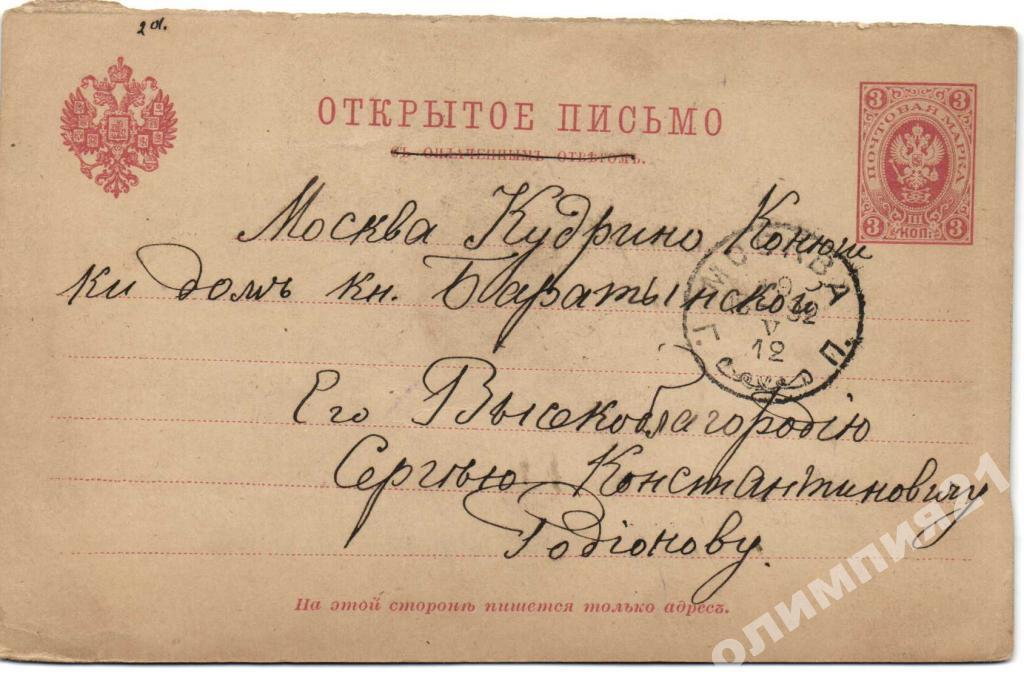 2 01.
ОТКРЫТОЕ ПИСЬМО
СЪ ОПЛАЧЕННЫМЪ ОТВѢТОМЪ.
3 3
ПОЧТОВАЯ МАРКА
3 КОП. 3
Москва Кудрино Конюш
ки домъ кн. Баратынской
МОСКВА
V
12
Г. П.
Его Высокоблагородію
Сергѣю Константиновичу
Родіонову.
На этой сторонѣ пишется только адресъ.
олимпия21